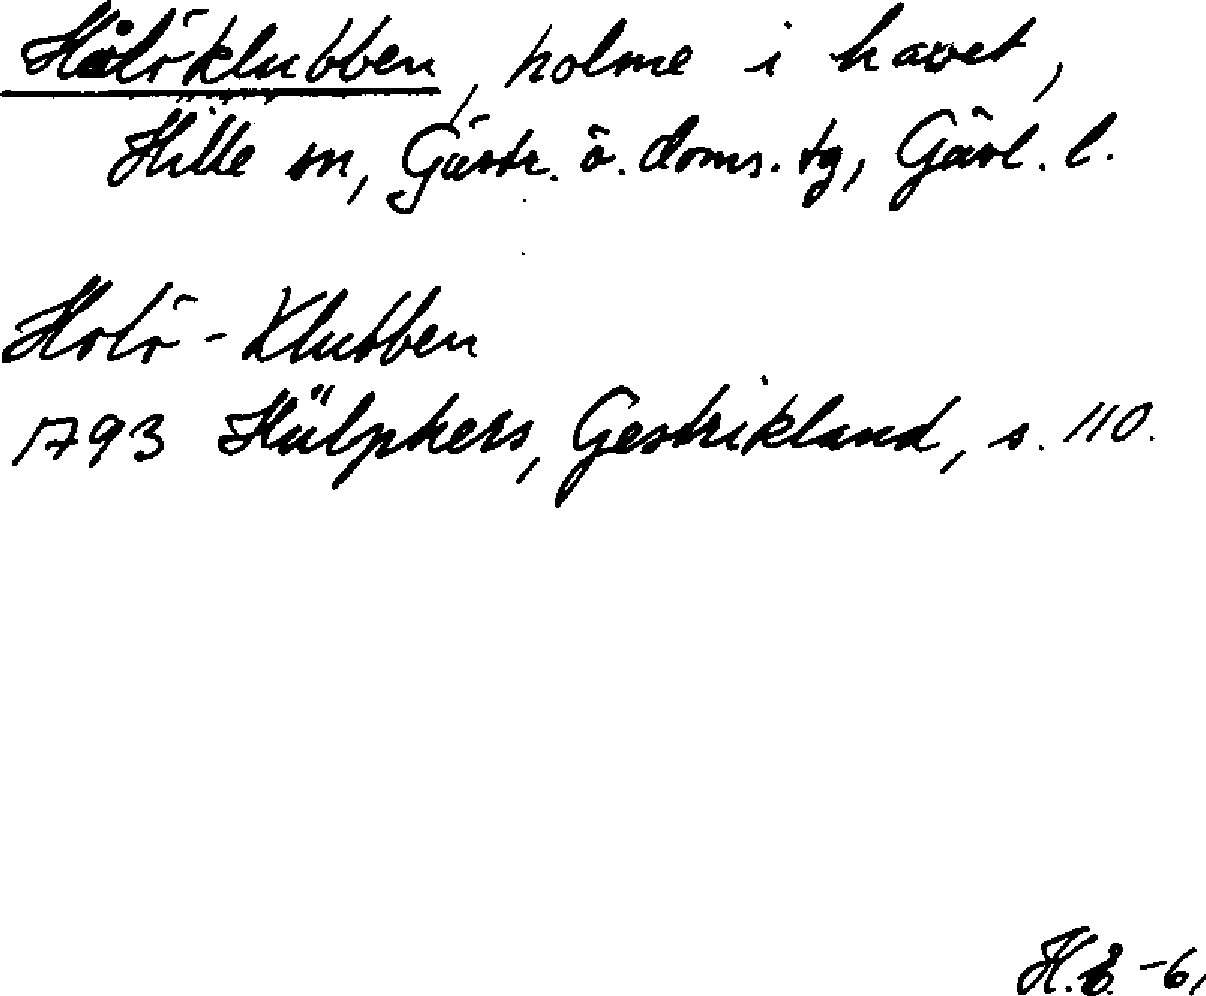 Hålöklubben, holme i havet,
Hille sn, Gästr. ö. doms. tg, Gävl. l.
Holö-Klubben
1793 Hülphers, Gestrikland, s. 110.